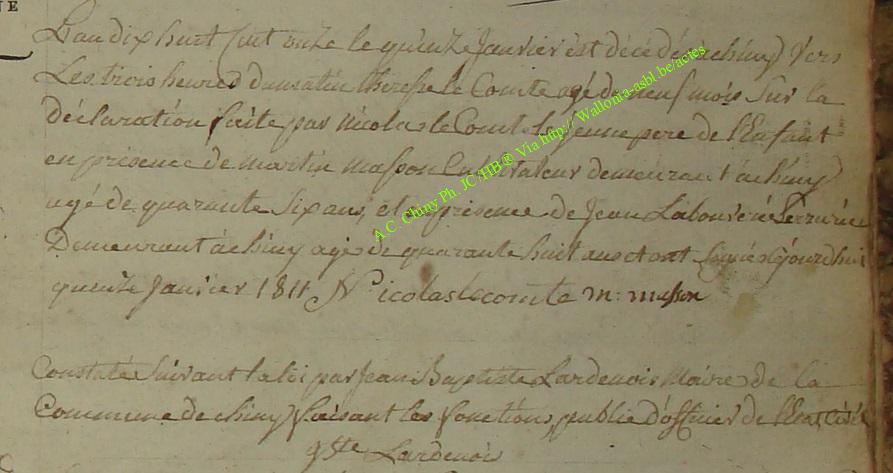 NE
L'an dix huit cent onze le quinze Janvier est décédé à chiny vers
Les trois heures du matin therese le Comte agé de neuf mois sur la
déclaration faite par nicolas le Comte le jeune pere de l'Enfant
en présence de martin masson Cultivateur demeurant à chiny
agé de quarante six ans, et en présence de Jean Serrurier
Demeurant à chiny agé de quarante huit ans et ont signé ajourdhui
quinze Janvier 1811 Nicolas lecomte m: masson
Constaté suivant la loi par Jean Baptiste Lardenois Maire de la
Commune de chiny faisant les fonctions public d'officier de l'Etat Civil
Lardenois
A.C. Chiny Ph. JC/HB® Via http:// Wallonia-asbl.be/actes